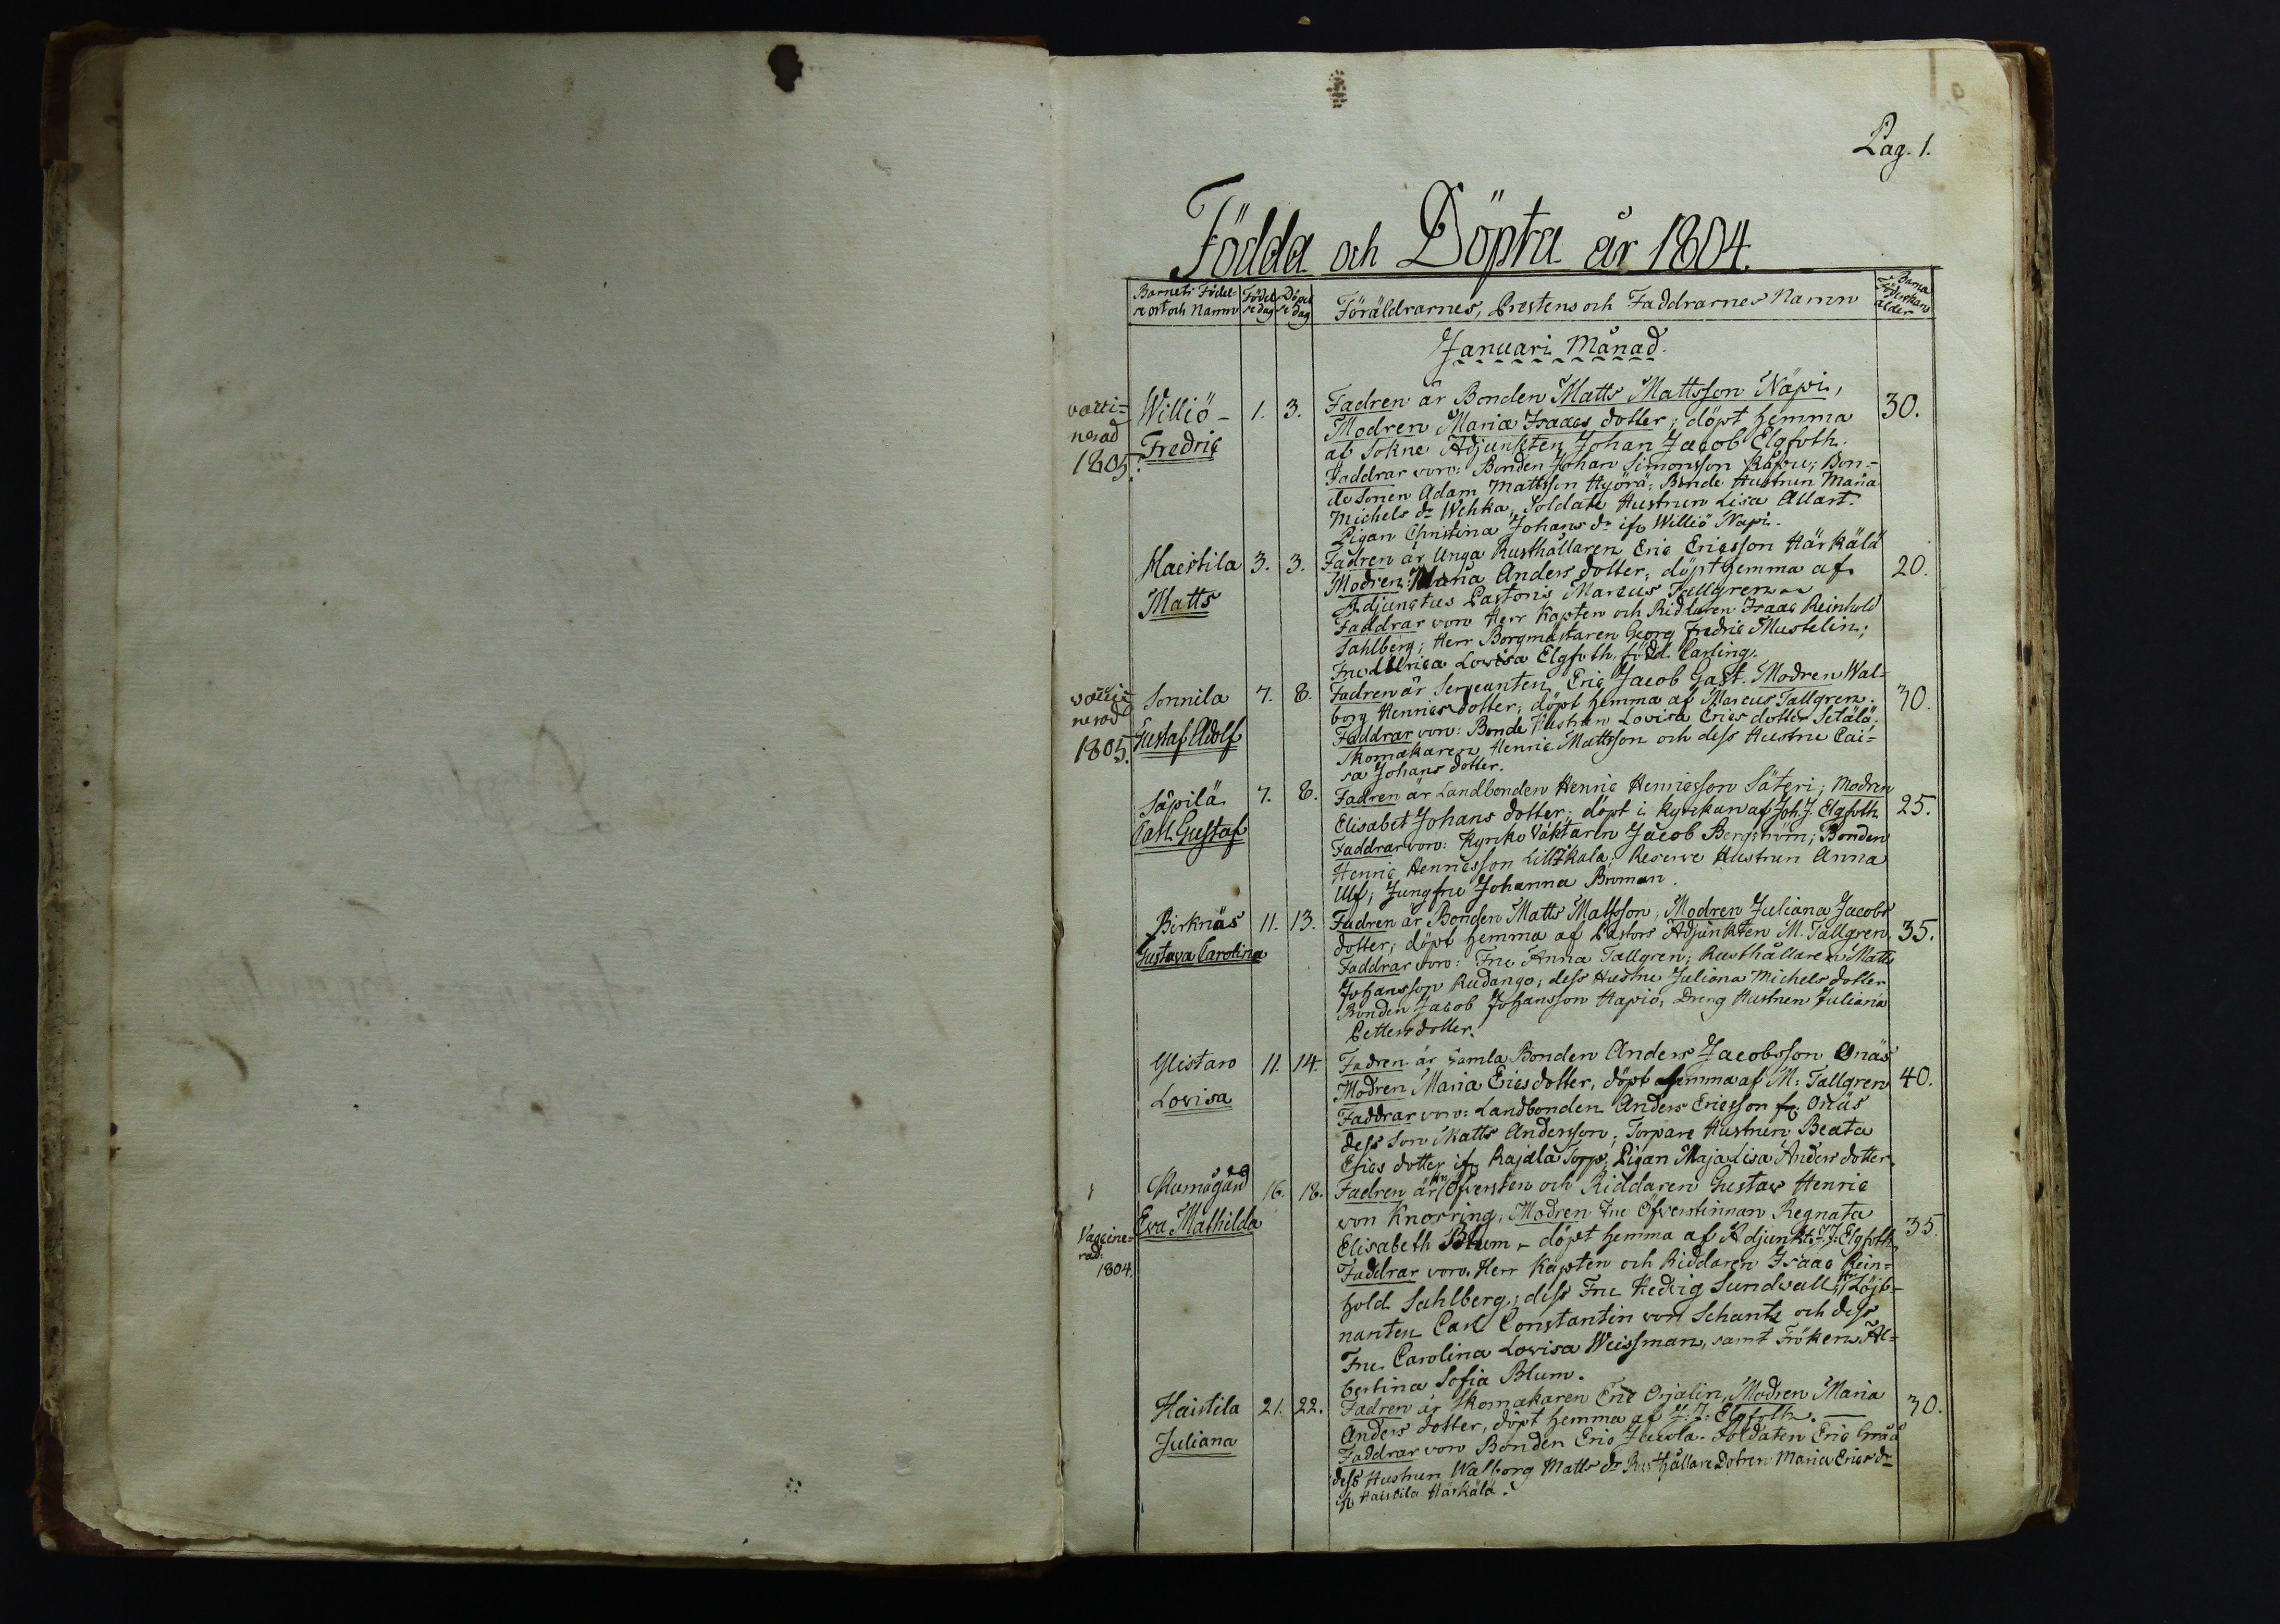 Pag. 1.
Födda och Döpta år 1804.
Barnets Födel-
se ort och Namn
Födel-
se dag
Döpel-
se dag
Föräldrarnes, Prestens och Faddrarnes Namn
Barna
Föderskans
ålder
Januari Månad.
vacci-
nerad
1805.
Williö -
Fredric
1. 3.
Fadren är Bonden Matts Mattsson Näpi,
Modren Maria Isaacs dotter; döpt hemma
af Sokne Adjunkten Johan Jacob Elgfoth.
Faddrar voro: Bonden Johan Simonsson; Bon-
de Sonen Adam Mattsson Hyörä; Bonde Hustrun Maria
Michels dr Wehka, Soldate Hustrun Lisa Allart.
Pigan Christina Johans dr ifr. Williö Näpi.
30.
Haistila
Matts
3. 3.
Fadren är Unga Rusthållaren Eric Ericsson Härkälä
Modren: Maria Anders dotter; döpt hemma af
Adjunctus Pastoris Marcus Tallgren
Faddrar voro Herr Kapten och Riddaren Isaac Reinhold
Sahlberg; Herr Borgmästaren Georg Fredric Mustelin;
Fru Ulrica Lovisa Elgfoth, född Carling.
20.
vacci-
nerad
1805.
Sonnila
Gustaf Adolf
7. 8.
Fadren är Sergeanten Eric Jacob Gast. Modren Wal-
borg Henrics dotter; döpt hemma af Marcus Tallgren.
Faddrar voro: Bonde Hustrun Lovisa Erics dotter Setälä;
Skomakaren Henric Mattsson och dess Hustru Cai-
sa Johans dotter.
30.
Säpilä
Carl Gustaf
7. 8.
Fadren är Landbonden Henric Henricsson Säteri; Modren
Elisabet Johans dotter; döpt i kyrckan af Joh. J. Elgfoth
Faddrar voro: Kyrko Väktaren Jacob Bergström; Bonden
Henric Henricsson Lillkala; Reserve Hustrun Anna
Ulf; Jungfru Johanna Broman.
25.
Birknäs
Gustava Carolina
11. 13.
Fadren är Bonden Matts Mattsson, Modren Juliana Jacobs
dotter; döpt hemma af Pastors Adjunkten M. Tallgren
Faddrar voro: Fru Anna Tallgren; Rusthållaren Matts
Johansson Rudango; dess Hustru Juliana Michels dotter
Bonden Jacob Johansson Hapio; Dreng Hustrun Juliana
Petters dotter.
35.
Ylistaro
Lovisa
11. 14.
Fadren är gamla Bonden Anders Jacobsson Onäs
Modren Maria Erics dotter, döpt hemma af M: Tallgren
Faddrar voro: Landbonden Anders Ericsson fr. Onäs
dess Son Matts Andersson; Torpare Hustrun Beata
Erics dotter ifr. Rajala Torp; Pigan Maja Lisa Anders dotter.
40.
Vaccine-
rad:
1804.
Kumogård
Eva Mathilda
16. 18.
Fadren är Hr Öfversten och Riddaren Gustav Henric
von Knorring; Modren Fru Öfverstinnan Regnata
Elisabeth Blum - döpt hemma af Adjunkt: J.J. Elgfoth
Faddrar voro. Herr Kapten och Riddaren Isaac Rein-
hold Sahlberg; dess Fru Hedvig Sundvall; Hr Löjt-
nanten Carl Constantin von Schantz och dess
Fru Carolina Lovisa Weissman, samt Fröken Al-
bertina Sofia Blum.
35.
Haistila
Juliana
21. 22.
Fadren är Skomakaren Eric Orjalin, Modren Maria
Anders dotter, döpt hemma af J: J: Elgfoth. —
Faddrar voro Bonden Eric Jacola. Soldaten Eric Grå
dess Hustrun Walborg Matts dr Rusthållare Dotren Maria Erics dr
ifr Haistila Härkälä.
30.